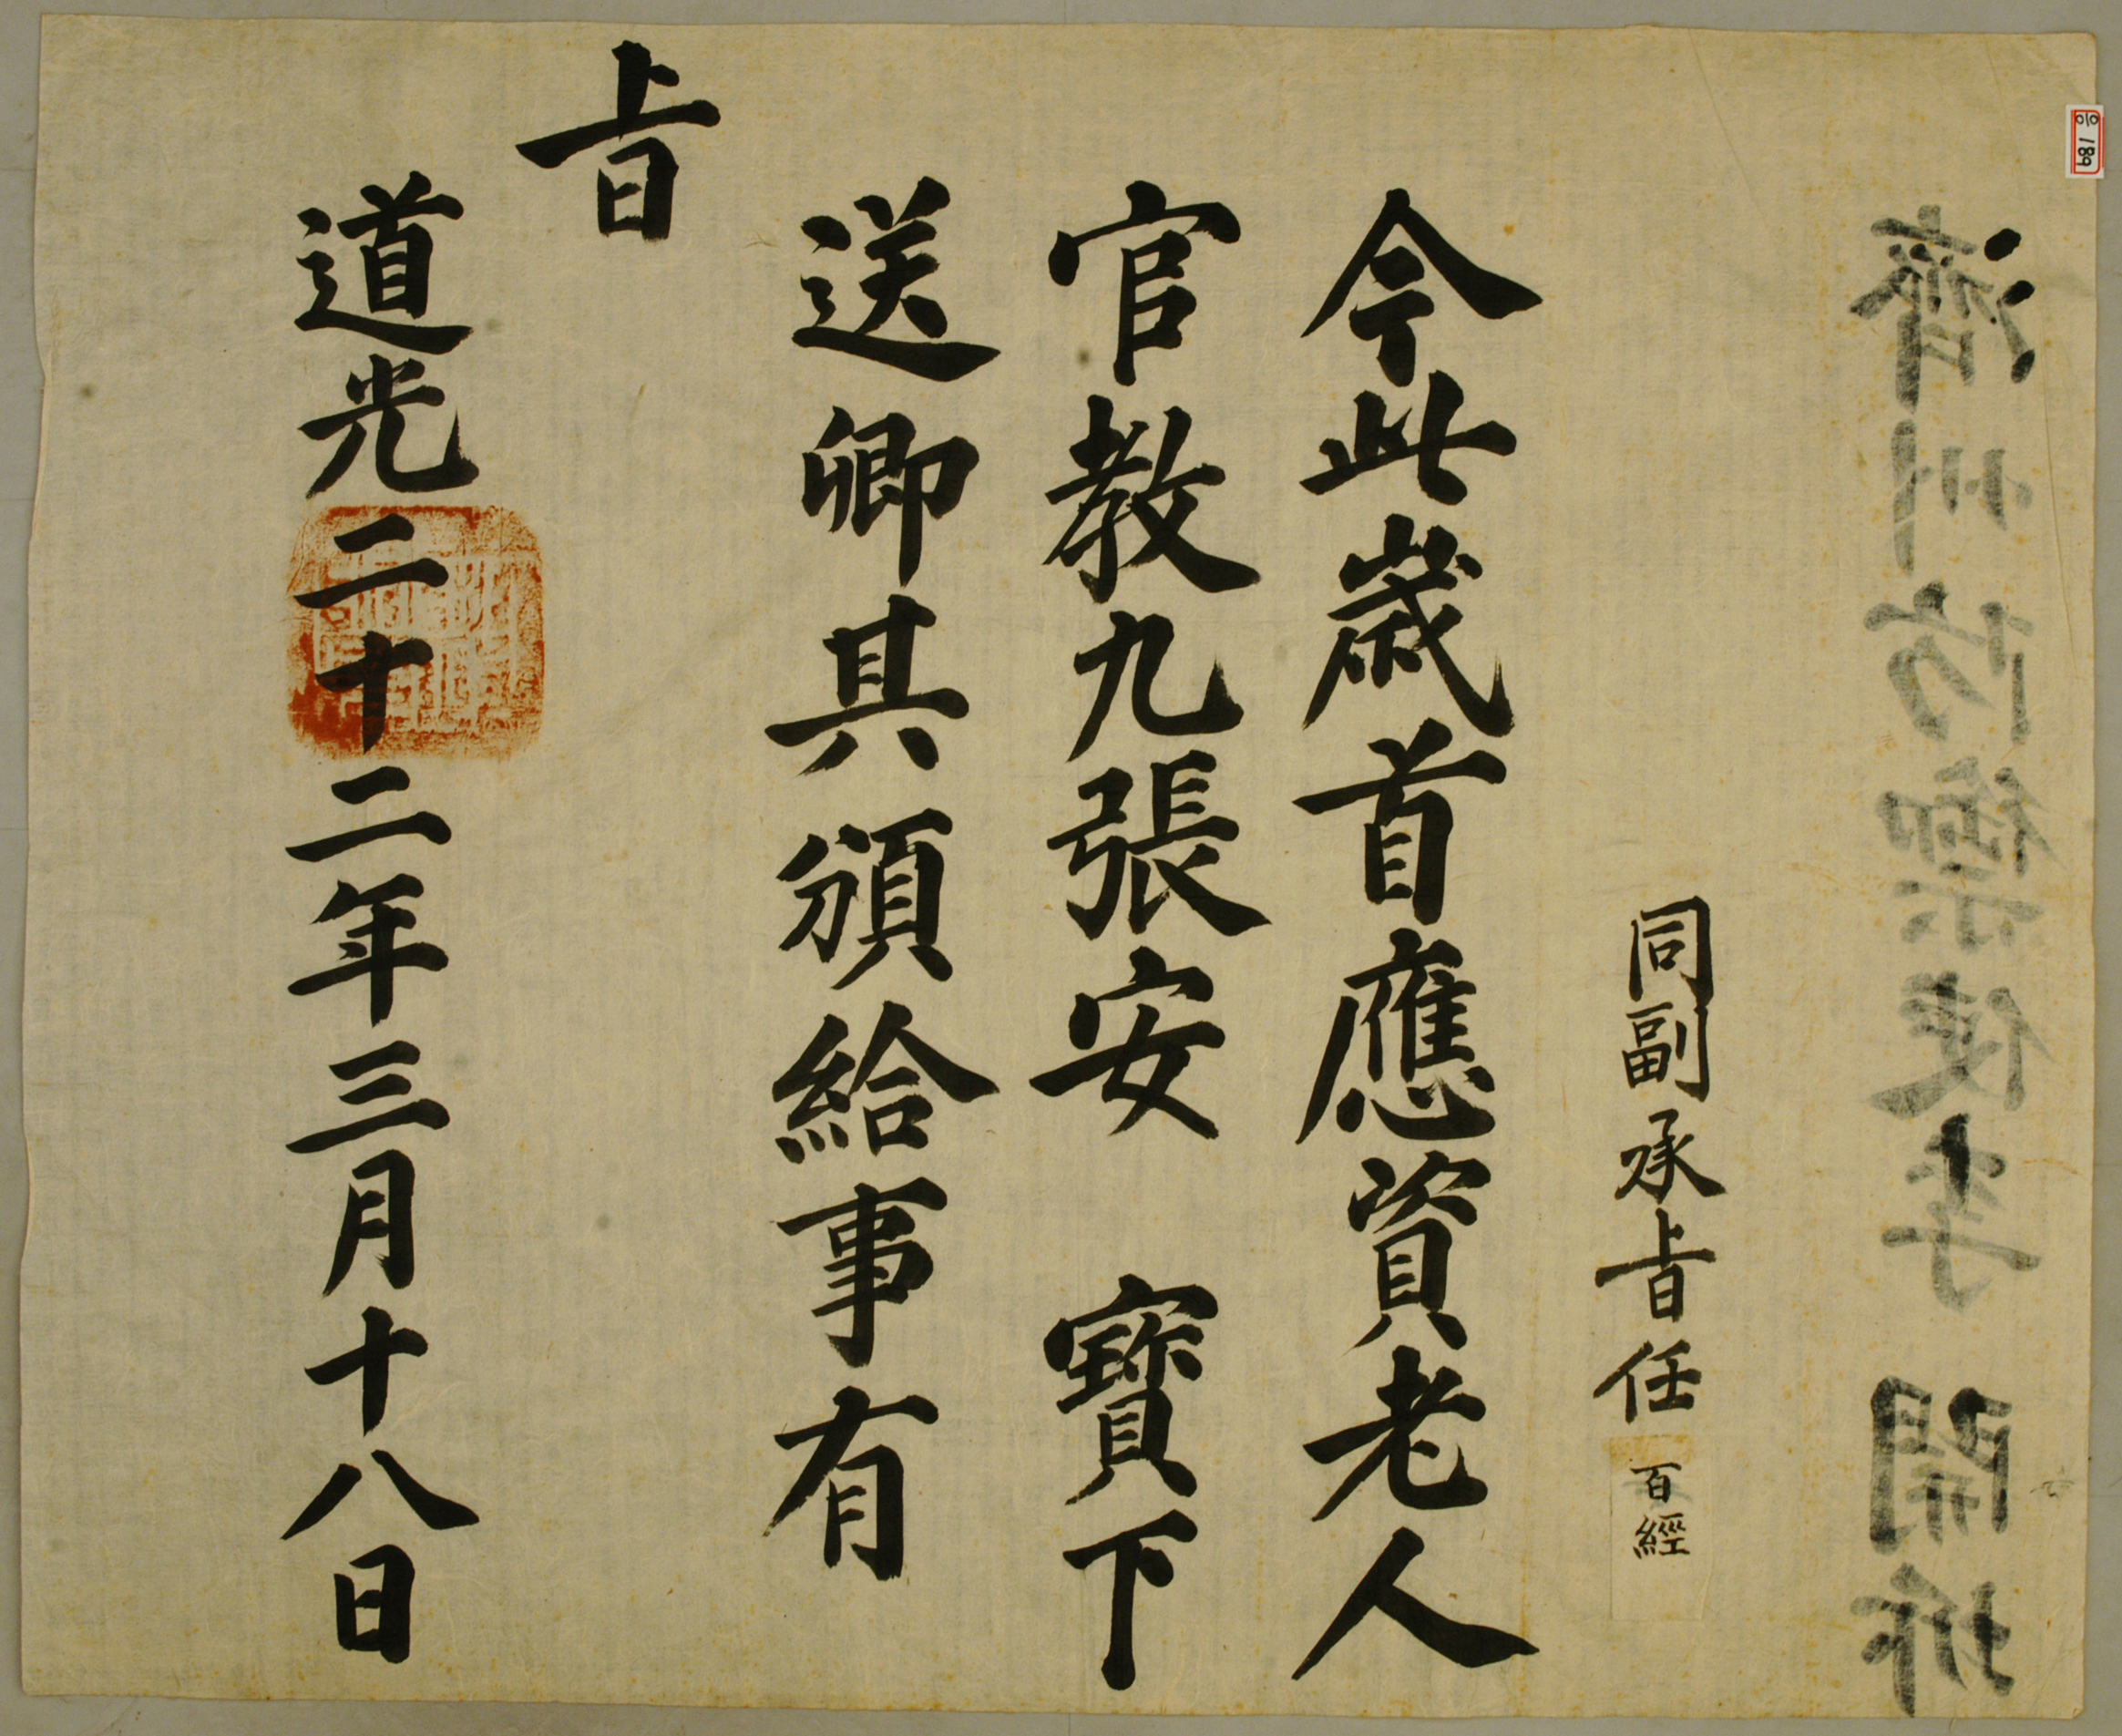 濟州防禦使李 開坼
同副承㫖任百經
今此歲首應資老人
官教九張安 寶下
送卿其頒給事有
㫖
道光二十二年三月十八日
189